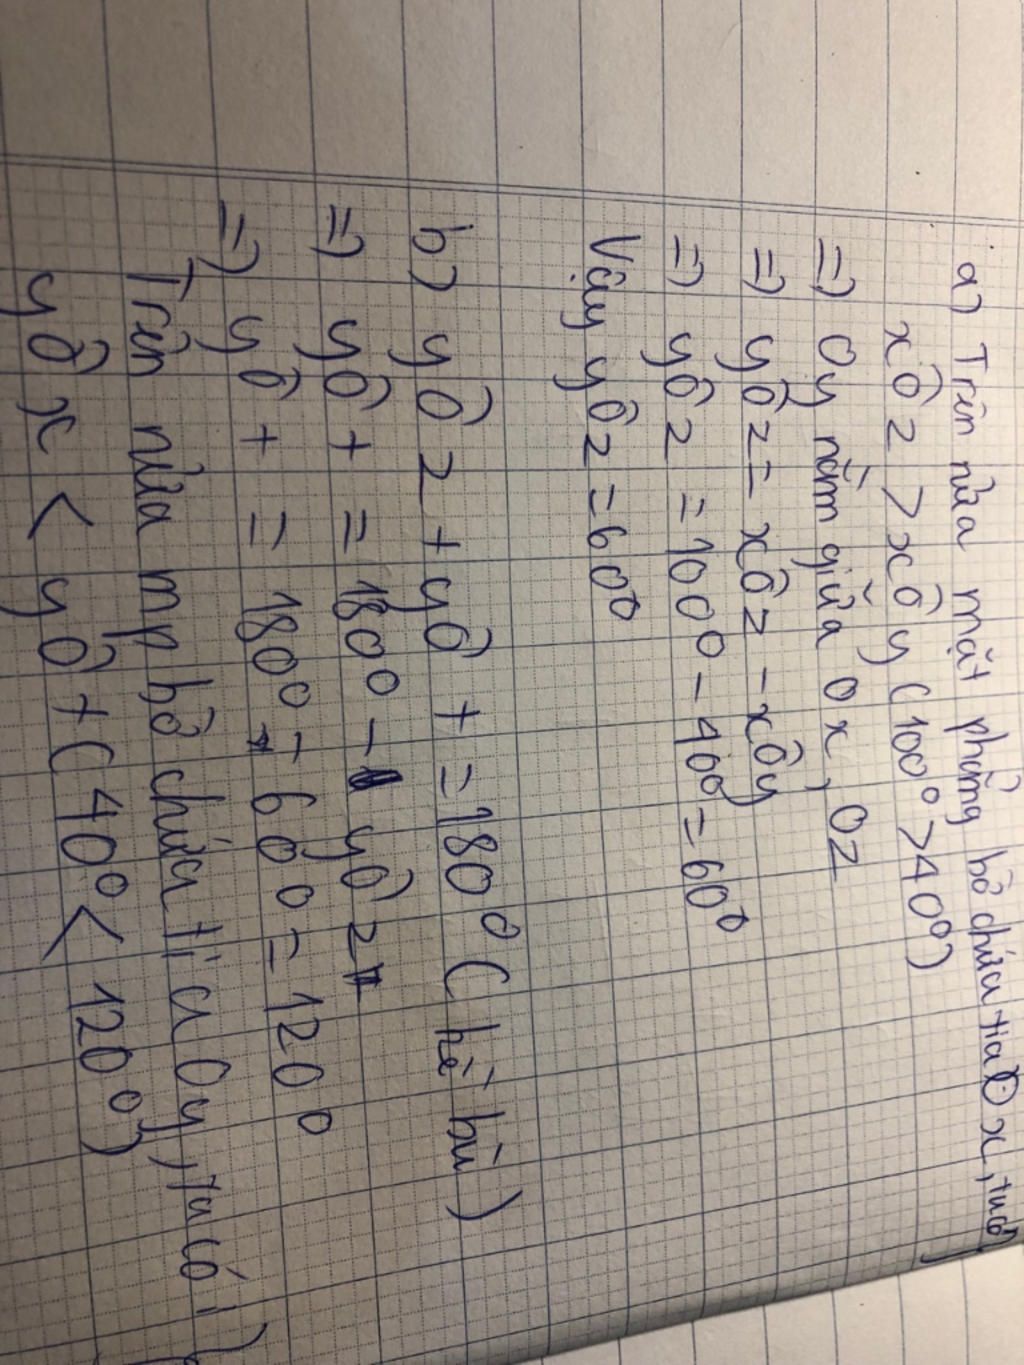 a) Trên nửa mặt phẳng bờ chứa tia Ox, ta có
xÔz > xÔy (100° > 40°)
=) Oy nằm giữa Ox, Oz
=) yÔz = xÔz - xÔy
=) yÔz = 100° - 40° = 60°
Vậy yÔz = 60°
b) yÔz + yÔt = 180° (kề bù)
=) yÔt = 180° - yÔz
=) yÔt = 180° - 60° = 120°
Trên nửa mp bờ chứa tia Oy, ta có:
yÔx < yÔt (40° < 120°)